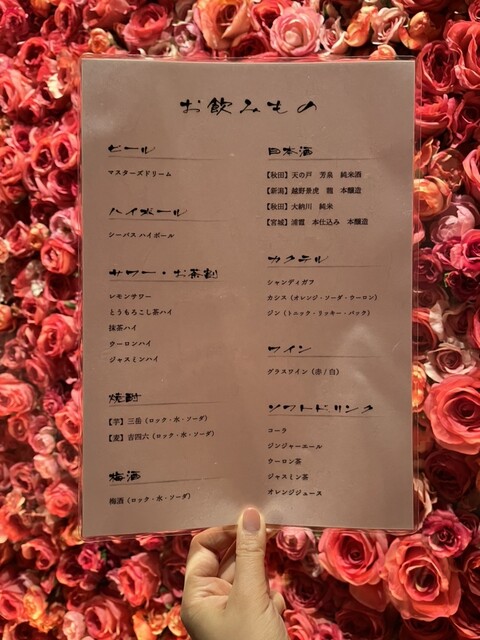 お飲みもの
ビール
マスターズドリーム
ハイボール
シーバス ハイボール
サワー・お茶割
レモンサワー
とうもろこし茶ハイ
抹茶ハイ
ウーロンハイ
ジャスミンハイ
焼酎
【芋】三岳（ロック・水・ソーダ）
【麦】吉四六（ロック・水・ソーダ）
梅酒
梅酒（ロック・水・ソーダ）
日本酒
【秋田】天の戸 芳泉 純米酒
【新潟】越野景虎 龍 本醸造
【秋田】大納川 純米
【宮城】浦霞 本仕込み 本醸造
カクテル
シャンディガフ
カシス（オレンジ・ソーダ・ウーロン）
ジン（トニック・リッキー・バック）
ワイン
グラスワイン（赤 / 白）
ソフトドリンク
コーラ
ジンジャーエール
ウーロン茶
ジャスミン茶
オレンジジュース